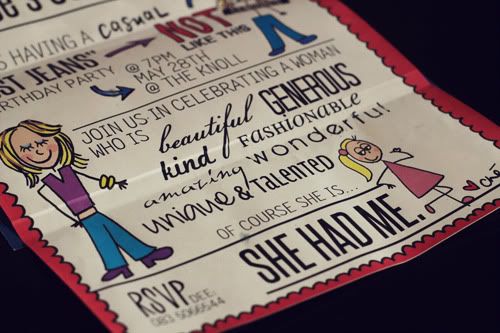 IS HAVING A CASUAL
NOT
LIKE THIS
ST JEANS'
RTHDAY PARTY
@ 7PM
MAY 28TH
@ THE KNOLL
JOIN US IN CELEBRATING A WOMAN
WHO IS beautiful GENEROUS
kind FASHIONABLE
amazing wonderful!
unique & TALENTED
OF COURSE SHE IS...
SHE HAD ME.
RSVP DEE:
083 5066544